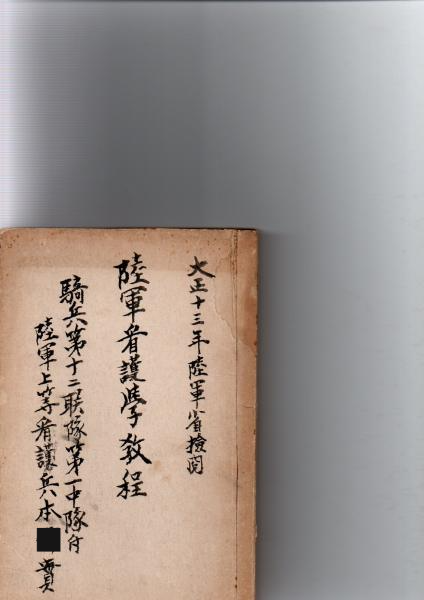 大正十三年陸軍省検閲
陸軍看護学教程
騎兵第十二聯隊第一中隊付
陸軍上等看護兵本